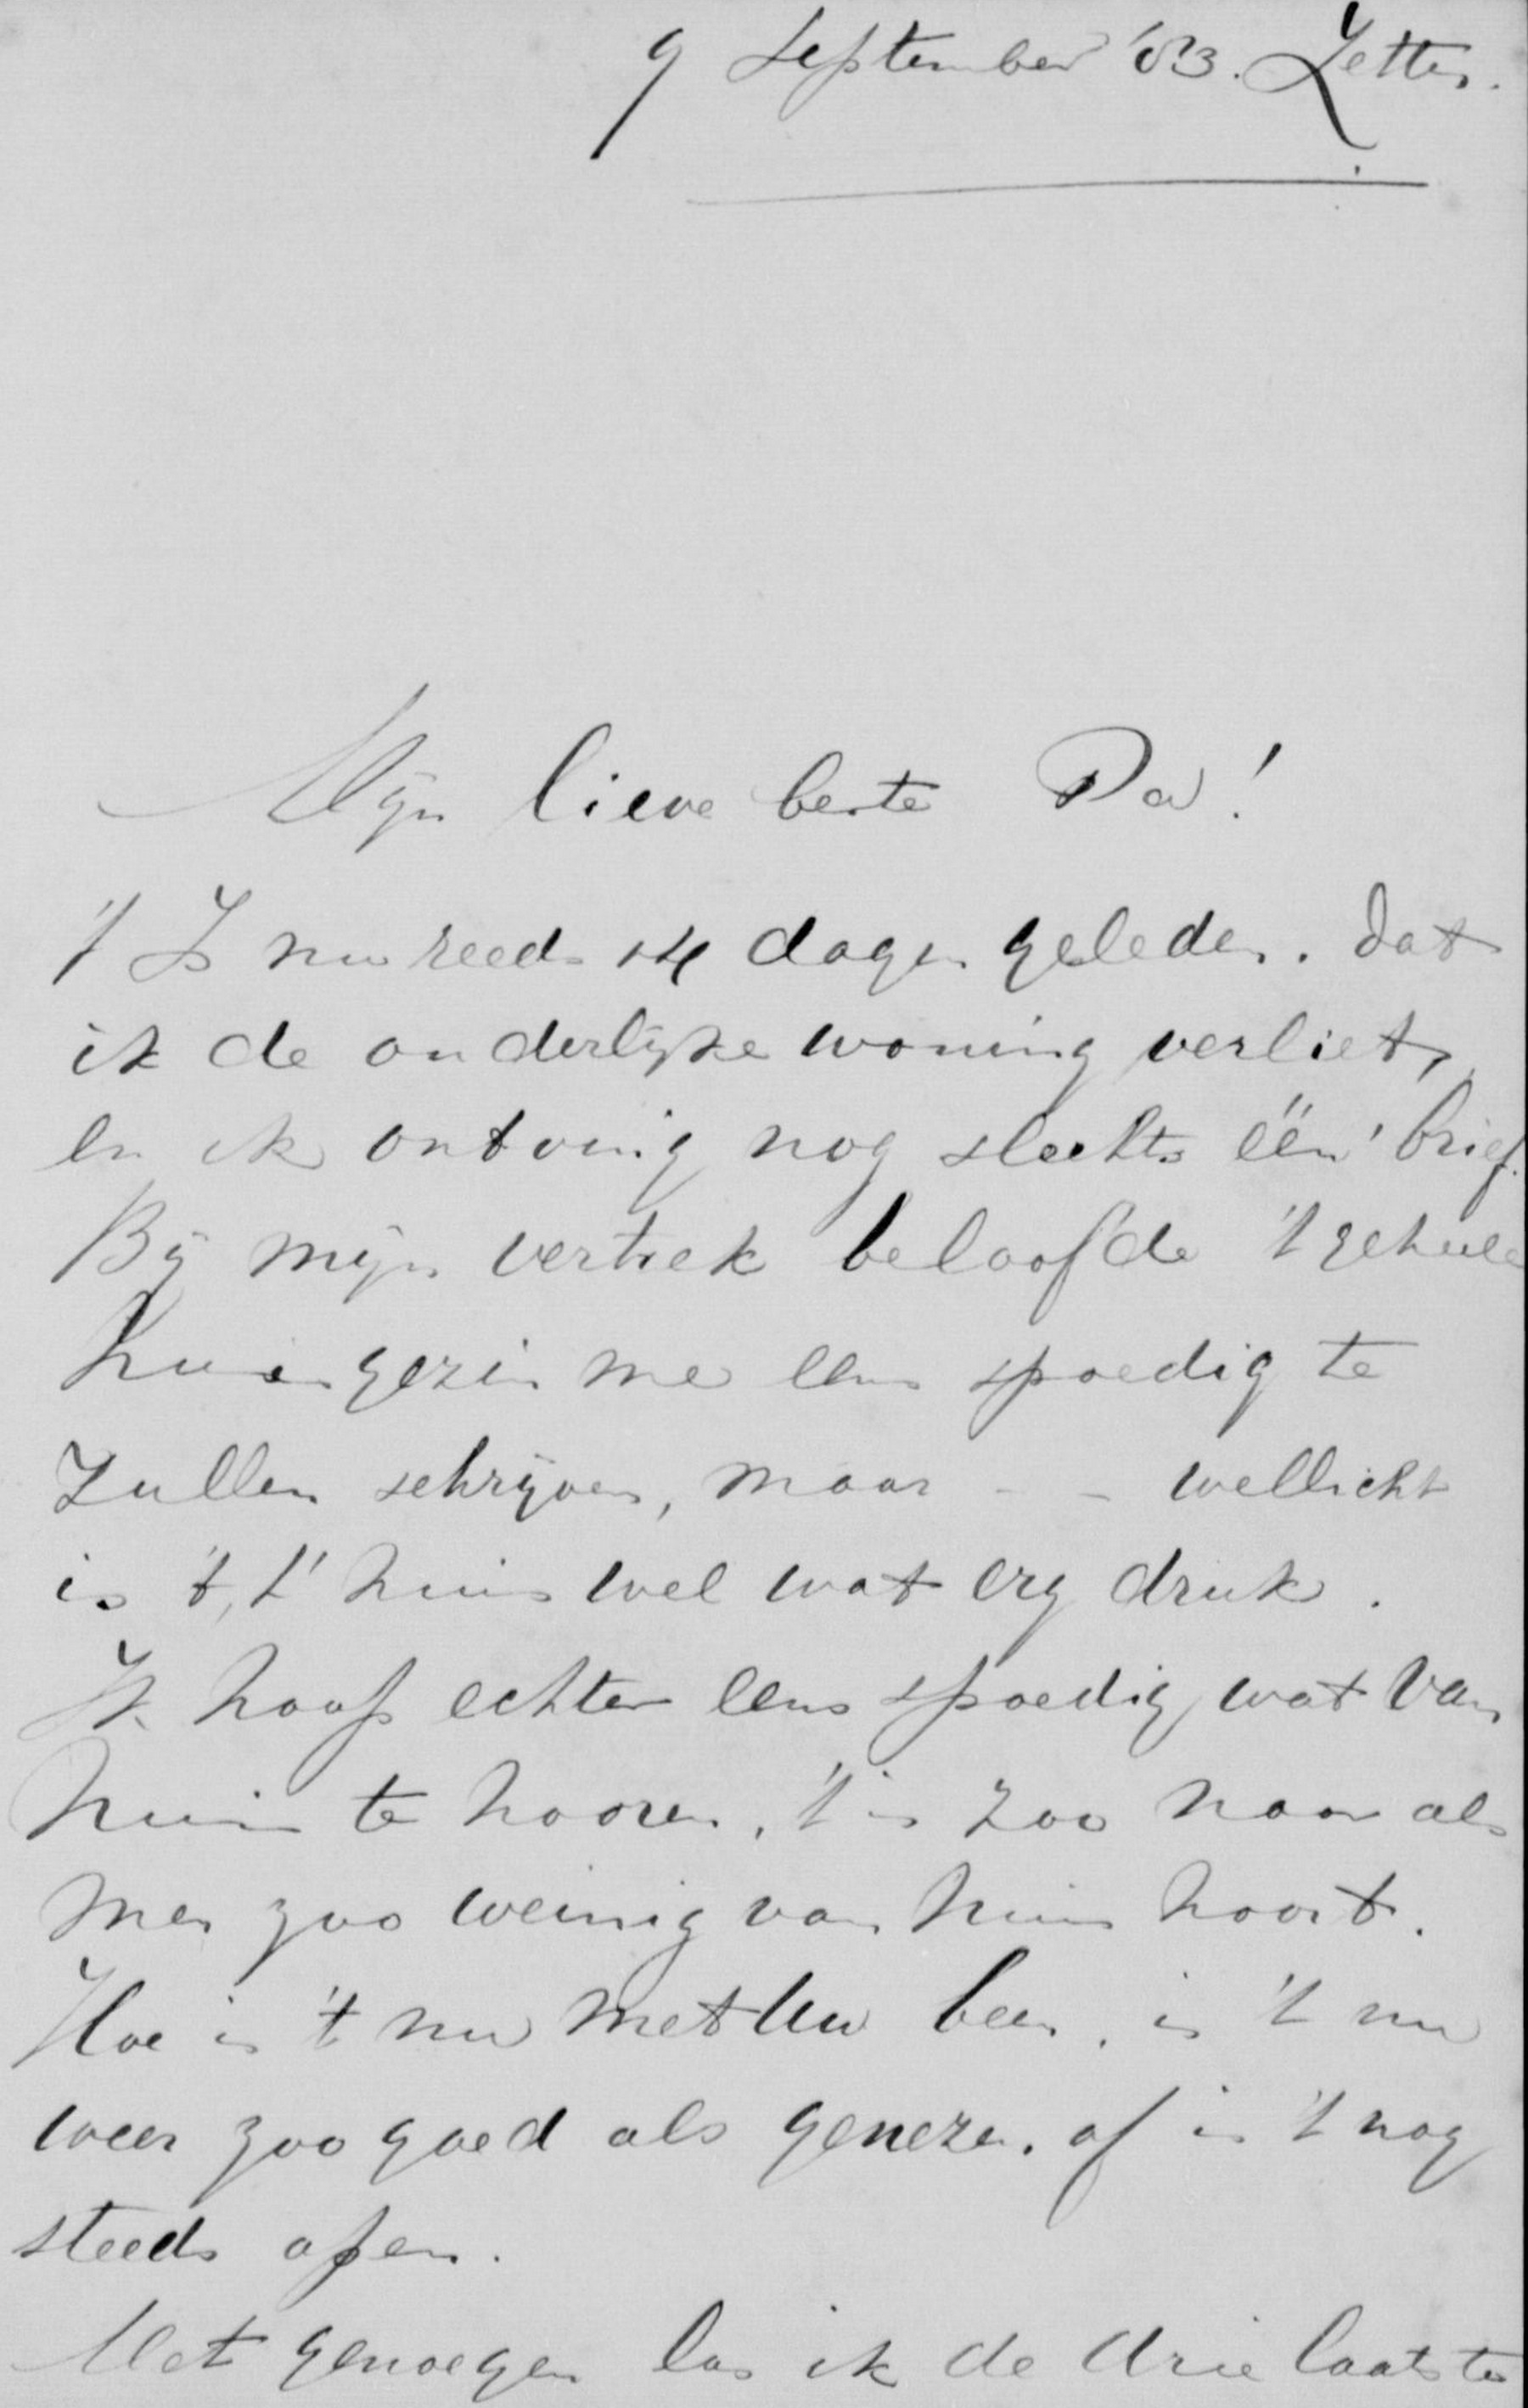 9 September '83. Zetten.
Mijn lieve beste Pa!
't Is nu reeds 14 dagen geleden. dat
ik de ouderlijke woning verliet,
en ik ontving nog slechts één brief.
Bij mijn vertrek beloofde 't geheele
huisgezin me eens spoedig te
zullen schrijven, maar - - wellicht
is 't, t' huis wel wat erg druk.
Ik hoop echter eens spoedig wat van
huis te hooren, 't is zoo naar als
men zoo weinig van huis hoort.
Hoe is 't nu met Uw been, is 't nu
weer zoo goed als genezen. of is 't nog
steeds open.
Met genoegen las ik de drie laatste